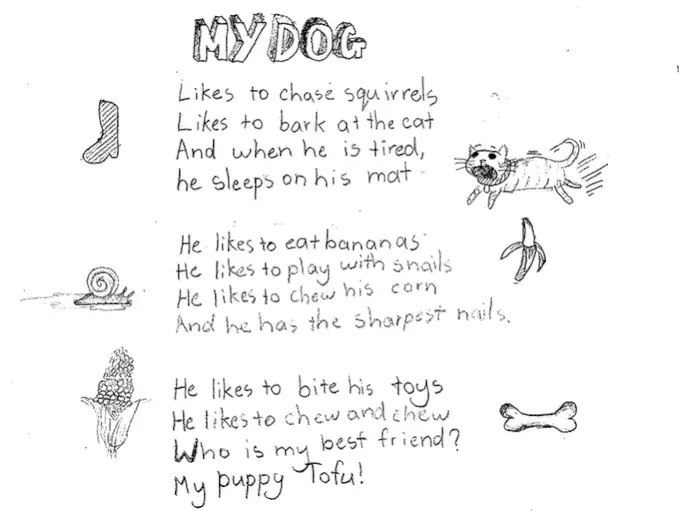 MY DOG
Likes to chase squirrels
Likes to bark at the cat
And when he is tired,
he sleeps on his mat
He likes to eat bananas
He likes to play with snails
He likes to chew his corn
And he has the sharpest nails.
He likes to bite his toys
He likes to chew and chew
Who is my best friend?
My puppy Tofu!